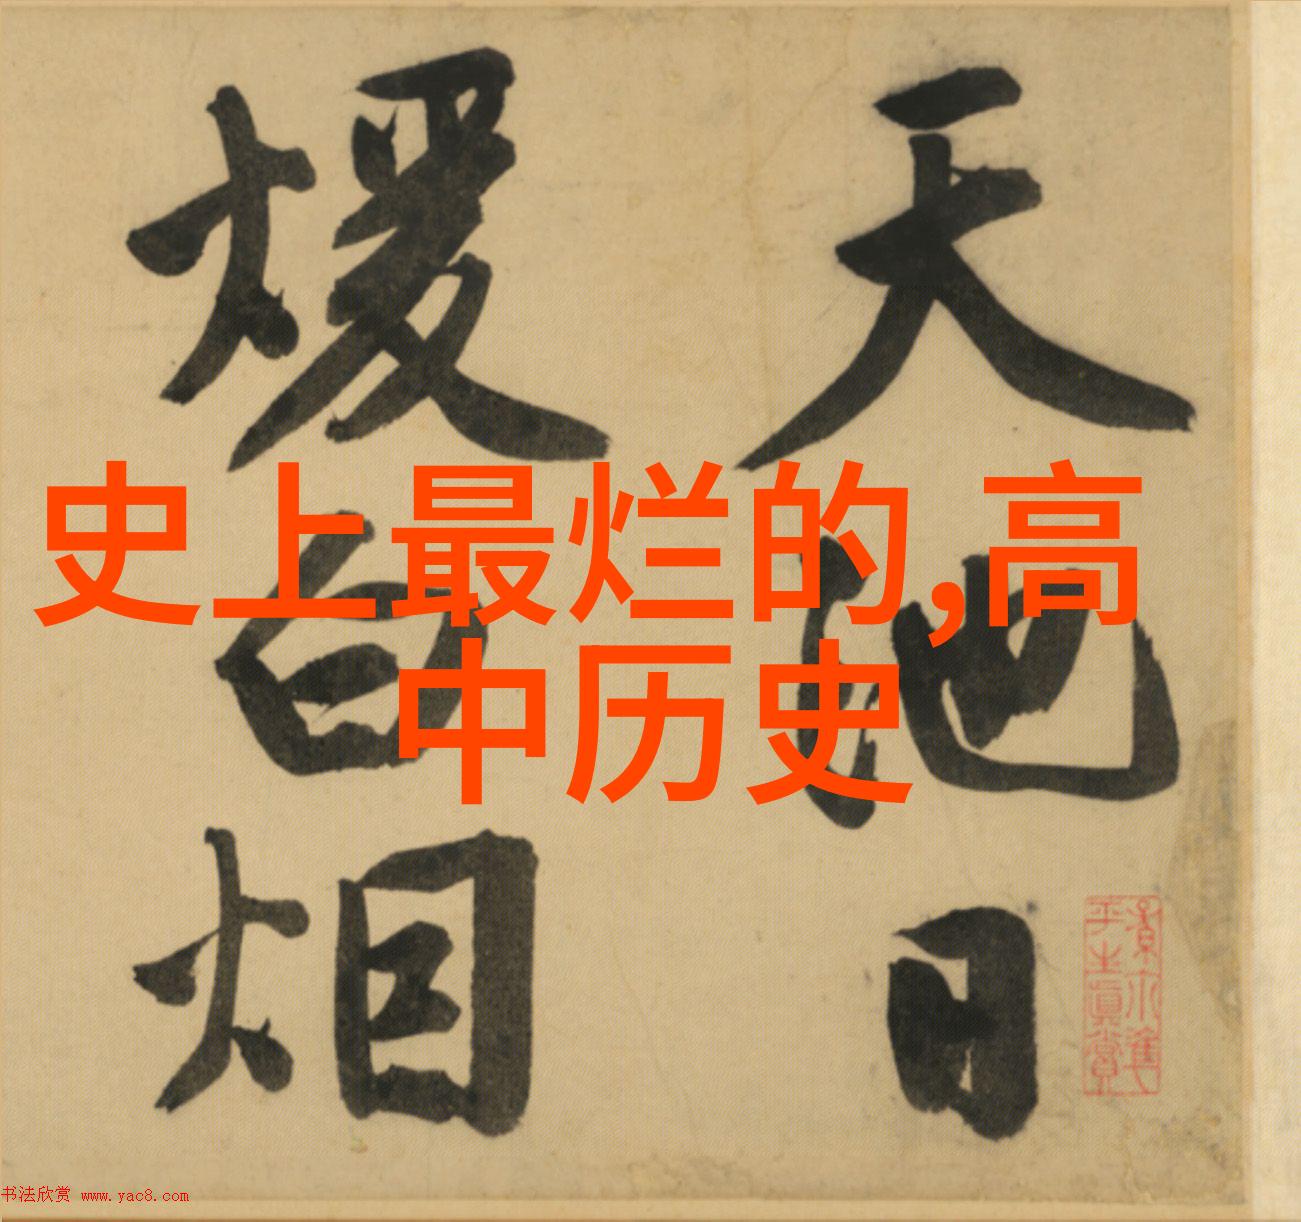 天地日
煖白烟
史上最烂的,高
中历史
书法欣赏 www.yac8.com